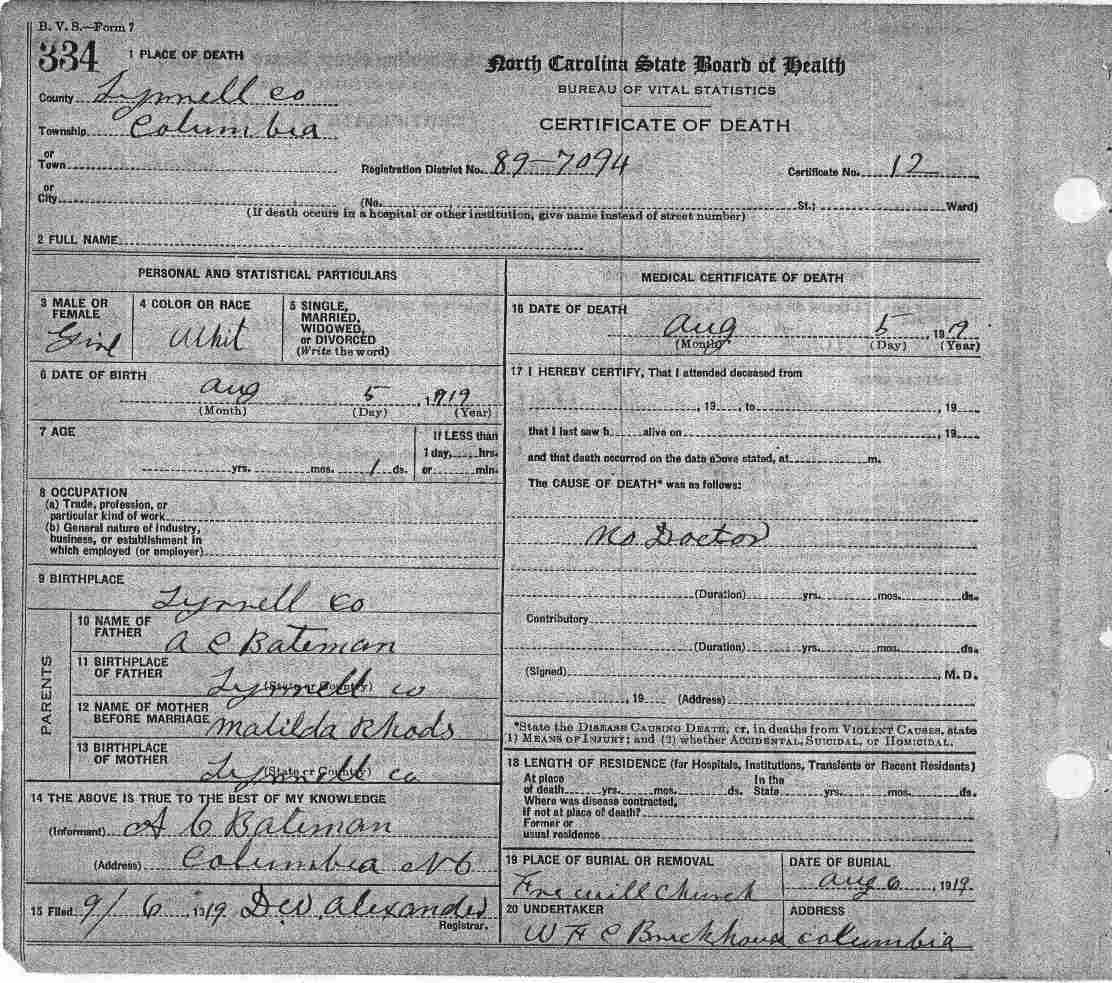 B. V. S.—Form 7
334
1 PLACE OF DEATH
County Tyrrell Co
Township Columbia
or
Town
or
City
North Carolina State Board of Health
BUREAU OF VITAL STATISTICS
CERTIFICATE OF DEATH
Registration District No. 89-7094
Certificate No. 12
(No. St.; Ward)
(If death occurs in a hospital or other institution, give name instead of street number)
2 FULL NAME
PERSONAL AND STATISTICAL PARTICULARS
3 MALE OR
FEMALE
Girl
4 COLOR OR RACE
Whit
5 SINGLE,
MARRIED,
WIDOWED,
or DIVORCED
(Write the word)
6 DATE OF BIRTH
Aug 5, 1919
(Month) (Day) (Year)
7 AGE
yrs. mos. 1 ds.
If LESS than
1 day, hrs.
or min.
8 OCCUPATION
(a) Trade, profession, or
particular kind of work
(b) General nature of Industry,
business, or establishment in
which employed (or employer)
9 BIRTHPLACE
Tyrrell Co
PARENTS
10 NAME OF
FATHER
A C Bateman
11 BIRTHPLACE
OF FATHER
(State or Country)
Tyrrell co
12 NAME OF MOTHER
BEFORE MARRIAGE
Matilda Rhods
13 BIRTHPLACE
OF MOTHER
(State or Country)
Tyrrell co
14 THE ABOVE IS TRUE TO THE BEST OF MY KNOWLEDGE
(Informant) A C Bateman
(Address) Columbia NC
15 Filed 9/6, 1919 Alexander
Registrar.
MEDICAL CERTIFICATE OF DEATH
16 DATE OF DEATH
Aug 5 1919
(Month) (Day) (Year)
17 I HEREBY CERTIFY, That I attended deceased from
, 19 , to , 19
that I last saw h alive on , 19
and that death occurred on the date above stated, at m.
The CAUSE OF DEATH* was as follows:
No Doctor
(Duration) yrs. mos. ds.
Contributory
(Duration) yrs. mos. ds.
(Signed) , M. D.
, 19 (Address)
*State the DISEASE CAUSING DEATH, or, in deaths from VIOLENT CAUSES, state
1) MEANS OF INJURY; and (2) whether ACCIDENTAL, SUICIDAL, OR HOMICIDAL.
18 LENGTH OF RESIDENCE (for Hospitals, Institutions, Transients or Recent Residents)
At place In the
of death yrs. mos. ds. State yrs. mos. ds.
Where was disease contracted,
If not at place of death?
Former or
usual residence
19 PLACE OF BURIAL OR REMOVAL
Free will Church
DATE OF BURIAL
Aug 6, 1919.
20 UNDERTAKER
W H C Brickhouse
ADDRESS
Columbia